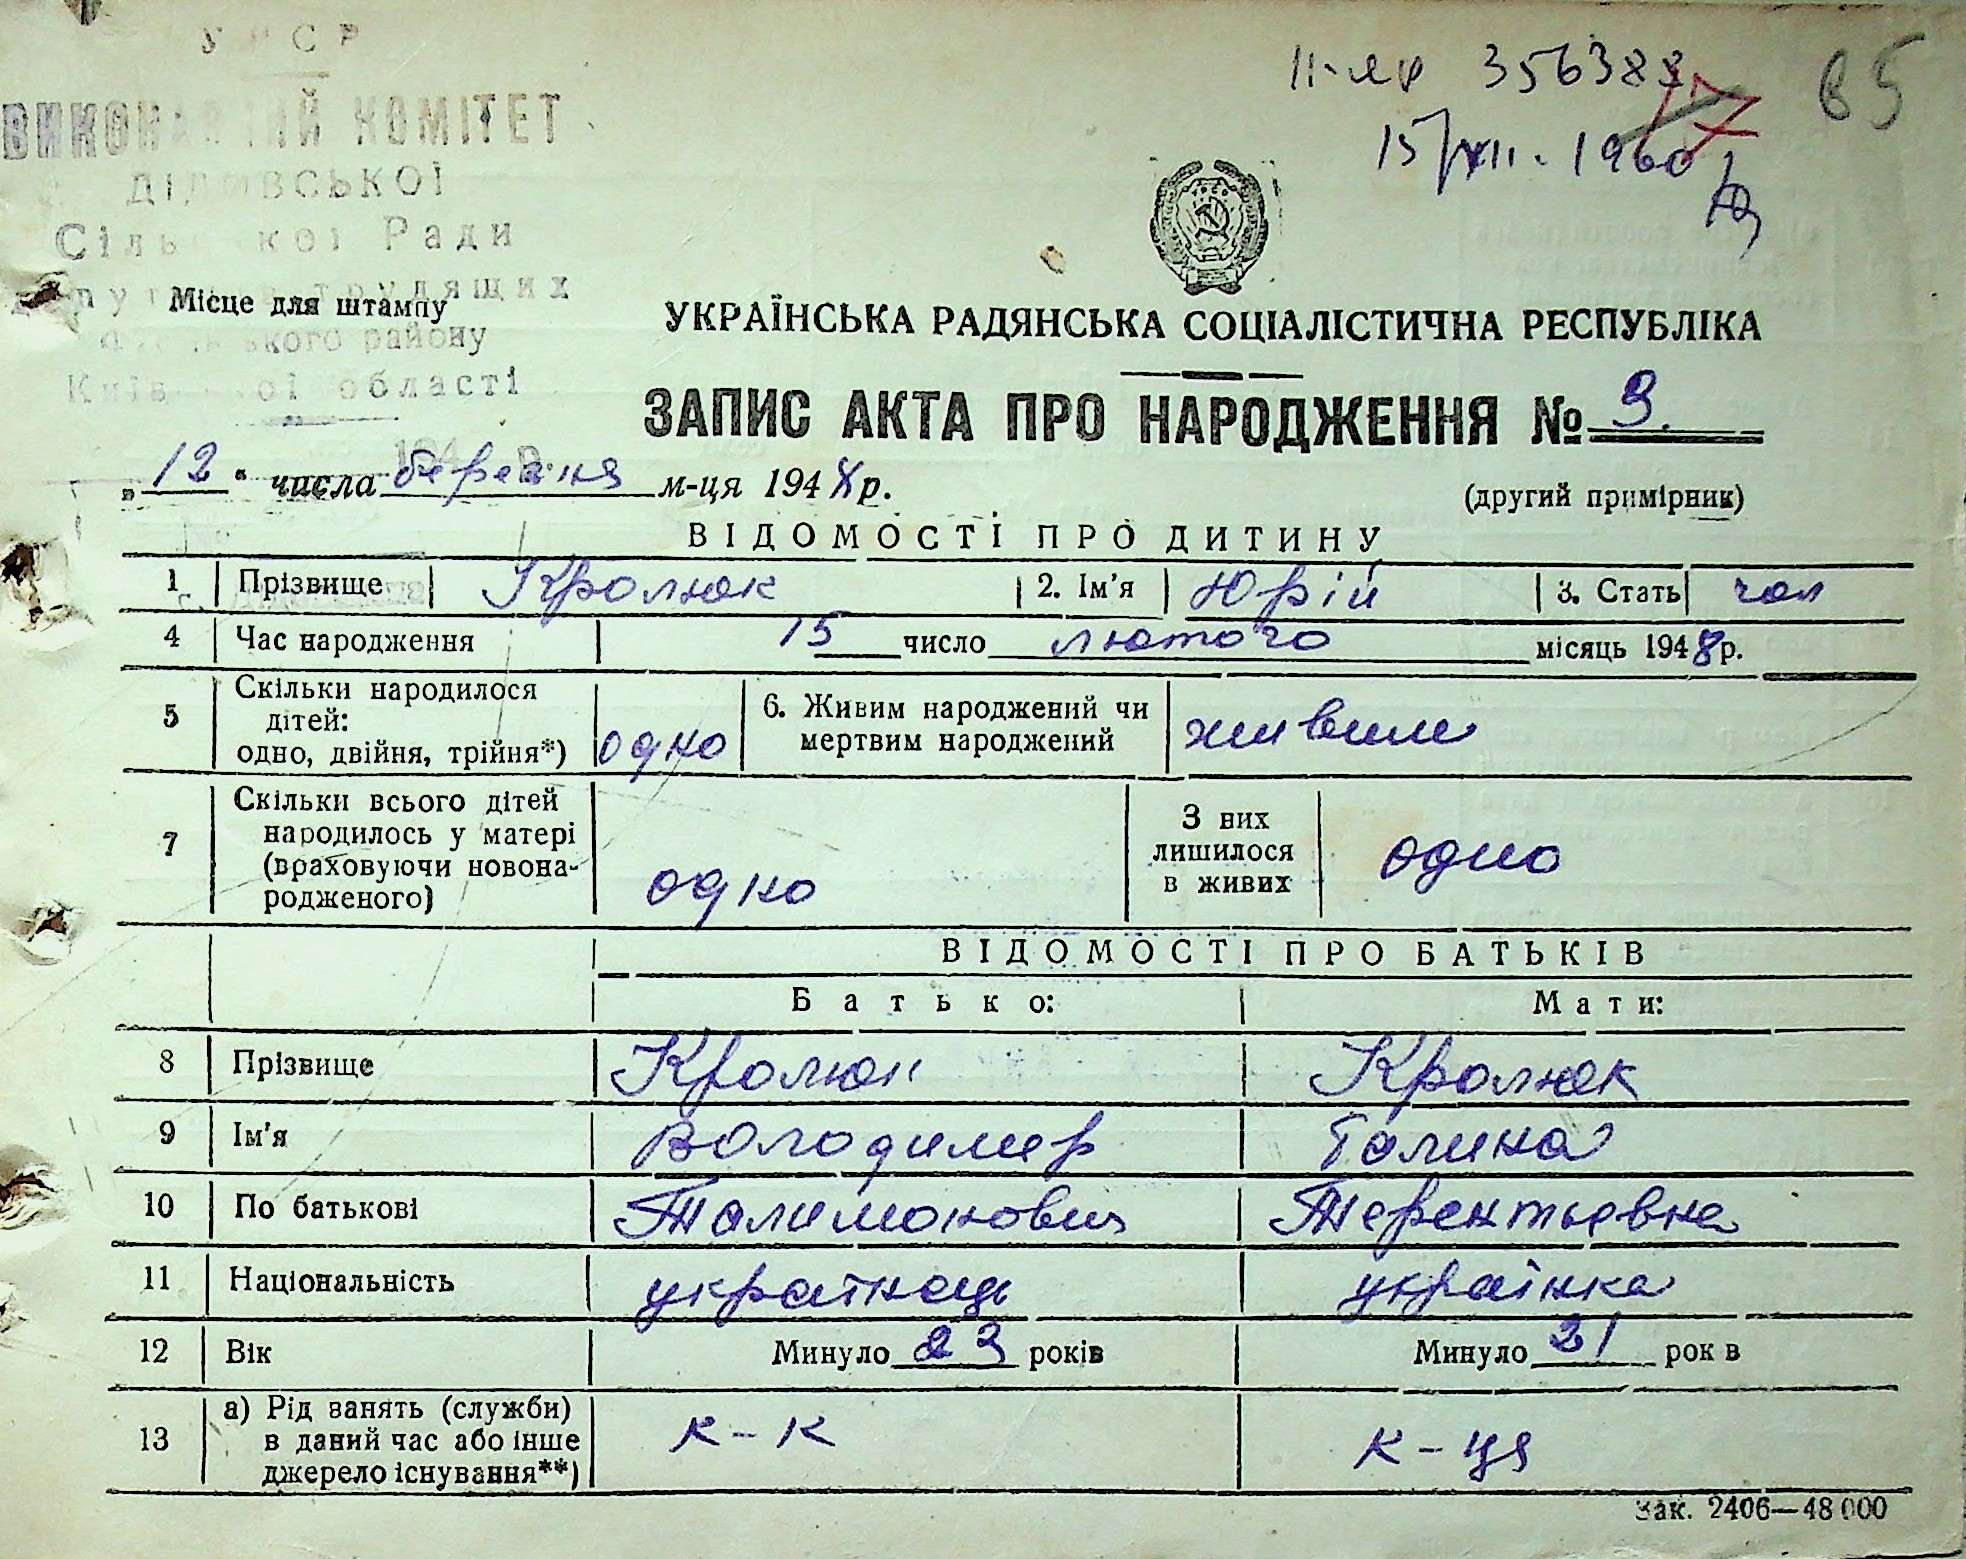 У Р С Р
ВИКОНАВЧИЙ КОМІТЕТ
ДІДІВСЬКОЇ
Сільської Ради
депутатів трудящих
району
Київської області
II-яю 356383
15/XII. 1960
17
85
Місце для штампу
УКРАЇНСЬКА РАДЯНСЬКА СОЦІАЛІСТИЧНА РЕСПУБЛІКА
ЗАПИС АКТА ПРО НАРОДЖЕННЯ № 9.
„12“ числа березня м-ця 1948 р.
(другий примірник)
ВІДОМОСТІ ПРО ДИТИНУ
1 Прізвище Кролюк 2. Ім'я Юрій 3. Стать чол
4 Час народження 15 число лютого місяць 1948 р.
5 Скільки народилося дітей: одно, двійня, трійня*) одно 6. Живим народжений чи мертвим народжений живим
7 Скільки всього дітей народилось у матері (враховуючи новонародженого) одно З них лишилося в живих одно
ВІДОМОСТІ ПРО БАТЬКІВ
Батько: Мати:
8 Прізвище Кролюк Кролюк
9 Ім'я Володимер Галина
10 По батькові Талимонович Терентьевна
11 Національність українець українка
12 Вік Минуло 23 років Минуло 21 рок в
13 а) Рід занять (служби) в даний час або інше джерело існування**) к-к к-ця
Зак. 2406—48 000